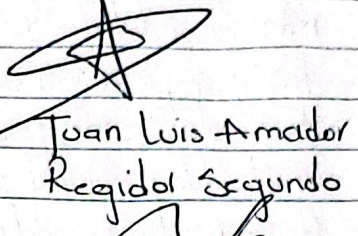 Juan Luis Amador
Regidor Segundo